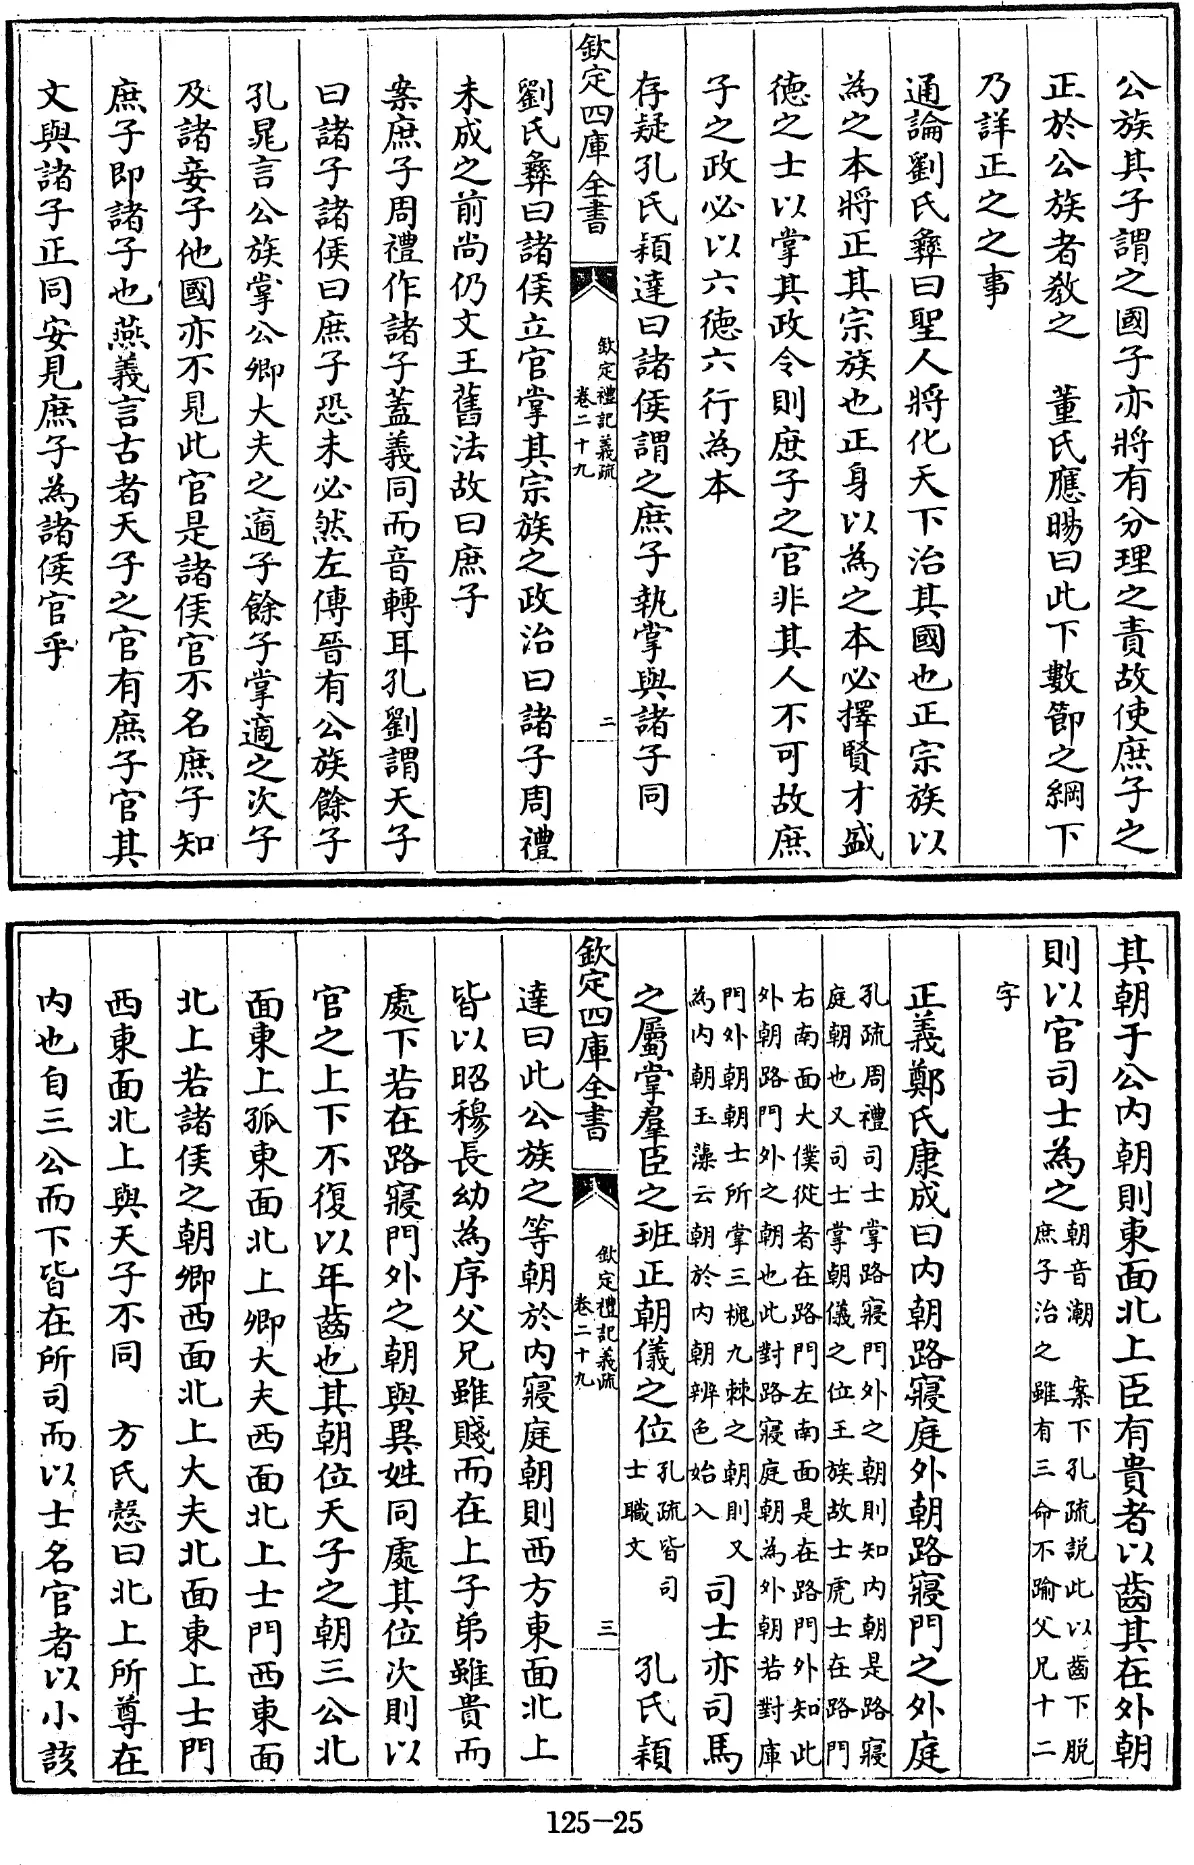 公族其子謂之國子亦將有分理之責故使庶子之
正於公族者教之　董氏應暘曰此下數節之綱下
乃詳正之之事
通論劉氏彝曰聖人將化天下治其國也正宗族以
為之本將正其宗族也正身以為之本必擇賢才盛
德之士以掌其政令則庶子之官非其人不可故庶
子之政必以六德六行為本
存疑孔氏穎達曰諸侯謂之庶子執掌與諸子同
欽定四庫全書
欽定禮記義疏
卷二十九
二
劉氏彝曰諸侯立官掌其宗族之政治曰諸子周禮
未成之前尚仍文王舊法故曰庶子
案庶子周禮作諸子蓋義同而音轉耳孔劉謂天子
曰諸子諸侯曰庶子恐未必然左傳晉有公族餘子
孔晁言公族掌公卿大夫之適子餘子掌適之次子
及諸妾子他國亦不見此官是諸侯官不名庶子知
庶子即諸子也燕義言古者天子之官有庶子官其
文與諸子正同安見庶子為諸侯官乎
其朝于公内朝則東面北上臣有貴者以齒其在外朝
則以官司士為之
朝音潮　案下孔疏説此以齒下脱
庶子治之雖有三命不踰父兄十二
字
正義鄭氏康成曰内朝路寢庭外朝路寢門之外庭
孔疏周禮司士掌路寢門外之朝則知内朝是路寢
庭朝也又司士掌朝儀之位王族故士虎士在路門
右南面大僕從者在路門左南面是在路門外知此
外朝路門外之朝也此對路寢庭朝為外朝若對庫
門外朝朝士所掌三槐九棘之朝則又
為内朝玉藻云朝於内朝辨色始入
司士亦司馬
之屬掌羣臣之班正朝儀之位
孔疏皆司
士職文
孔氏穎
欽定四庫全書
欽定禮記義疏
卷二十九
三
達曰此公族之等朝於内寢庭朝則西方東面北上
皆以昭穆長幼為序父兄雖賤而在上子弟雖貴而
處下若在路寢門外之朝與異姓同處其位次則以
官之上下不復以年齒也其朝位天子之朝三公北
面東上孤東面北上卿大夫西面北上士門西東面
北上若諸侯之朝卿西面北上大夫北面東上士門
西東面北上與天子不同　方氏慤曰北上所尊在
内也自三公而下皆在所司而以士名官者以小該
125—25